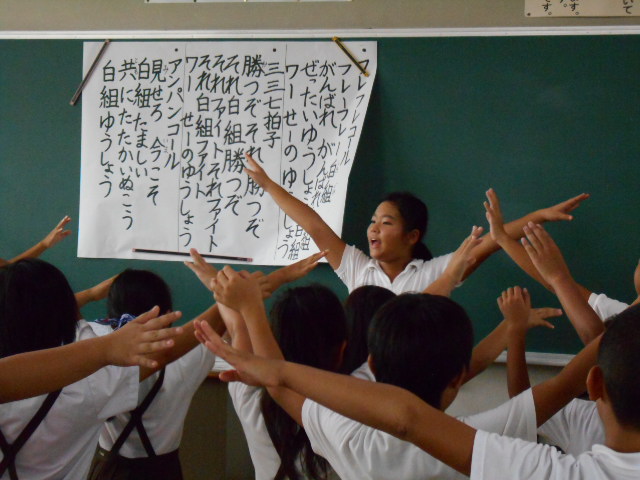 フレフレコール
フレーフレー白組
がんばれ がんばれ白組
ぜったいゆうしょう
ワー せーのゆうしょう
三三七拍子
勝つぞ それ 勝つぞ
それ白組勝つぞ
それファイト それファイト
それ白組ファイト
ワー せーのゆうしょう
アンパンコール
見せろ 今こそ
白組たましい
共にたたかいぬこう
白組ゆうしょう